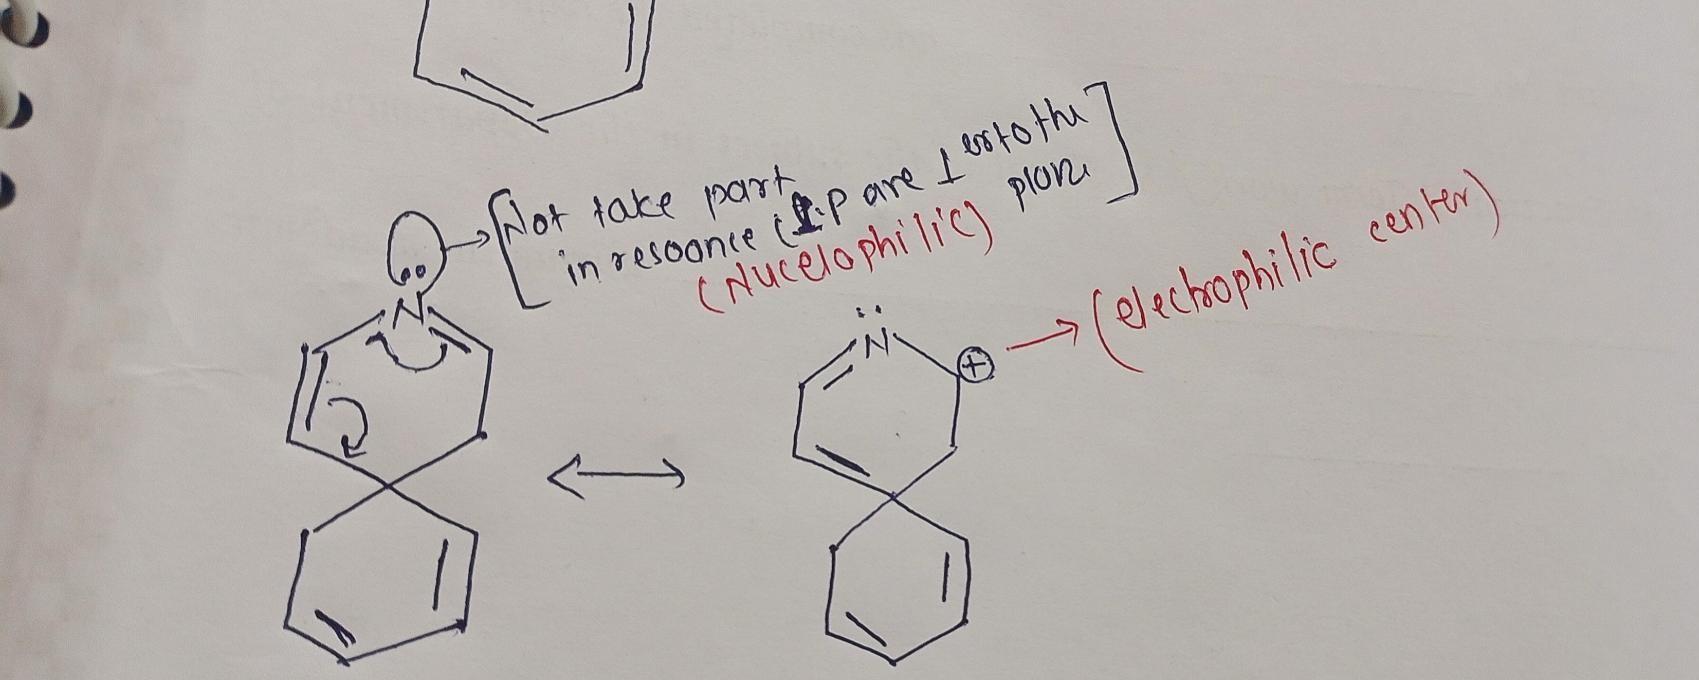 [Not take part
in resoonce (l.p are ⊥ er to the
plane]
(Nucelophilic)
N
⊕ → (electrophilic center)
N